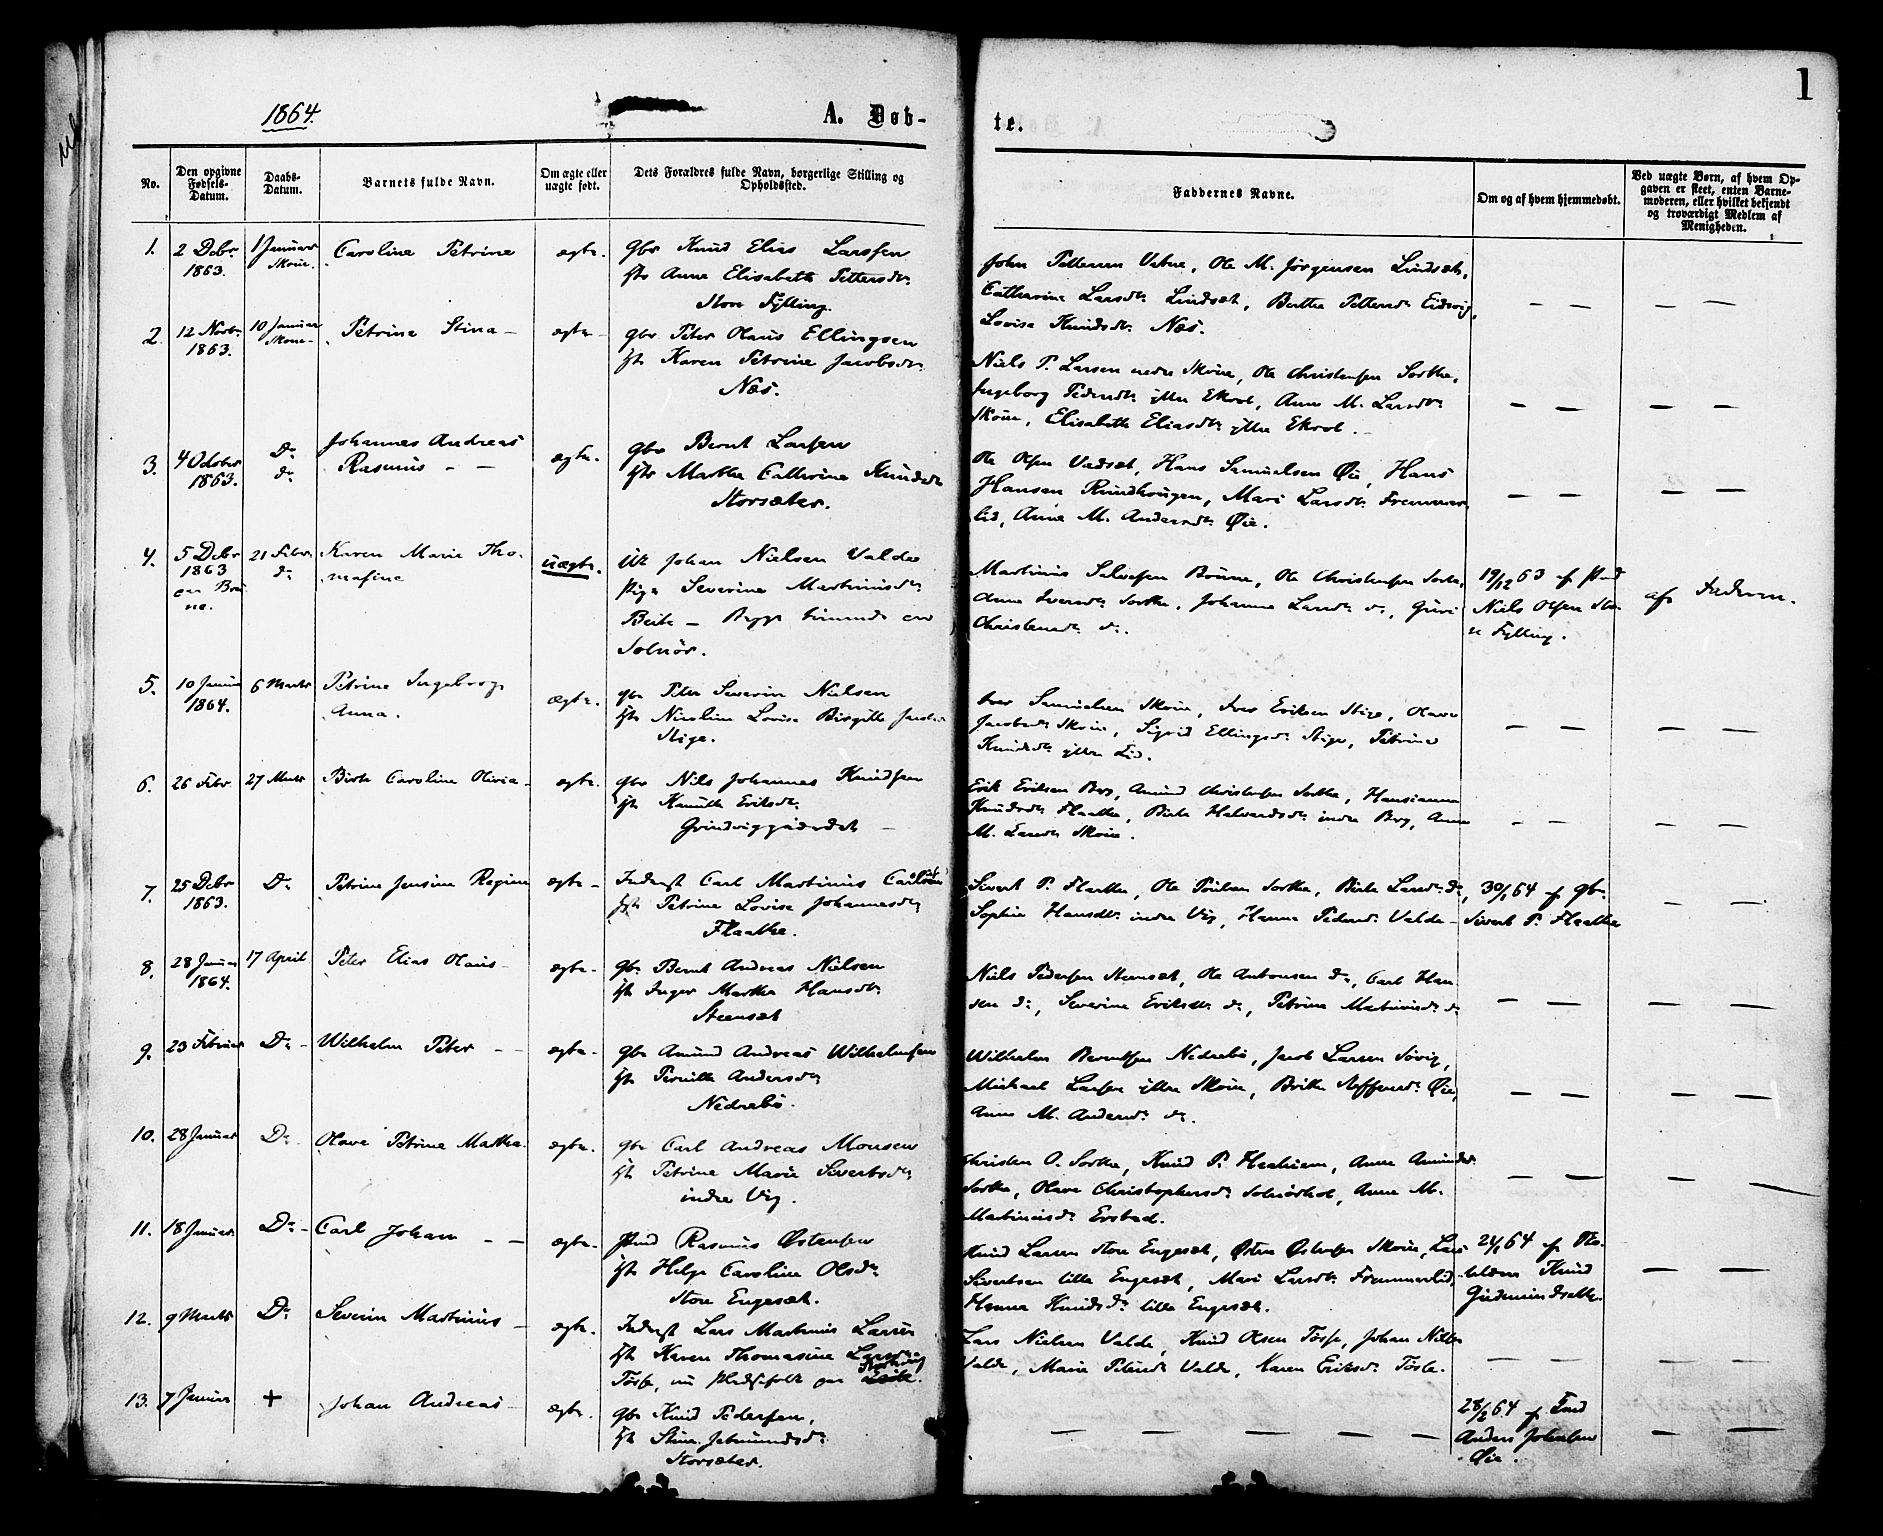 1864.
A. Døb-
te.
1
No.
Den opgivne Fødsels-Datum.
Daabs-Datum.
Barnets fulde Navn.
Om ægte eller uægte født.
Dets Forældres fulde Navn, borgerlige Stilling og Opholdssted.
Faddernes Navne.
Om og af hvem hjemmedøbt.
Ved uægte Børn, af hvem Op-
gaven er skeet, enten Barne-
moderen, eller hvilket bekjendt
og troværdigt Medlem af
Menigheden.
1. 2 Debr 1 Januar Caroline Petrine ægte. gbr Knud Elias Larssen
1863. Skoue. hst Anne Elisabeth Pettersdtr
Store Fylling.
John Pettersen Vatne, Ole M. Jørgensen Lindsæt,
Catharine Larsdtr Lindsæt, Berthe Pettersdtr Eidsvig,
Lovise Knudsdtr Næs.
2 12 Novbr 10 Januar Petrine Stina ægte gbr Peter Olaus Ellingsen
1863. Skoue hst Karen Petrine Jacobsdtr
Næs.
Niels P. Larsen nedre Skoue, Ole Christensen Sorthe,
Ingeborg Pedersdtr yttre Ekrol, Anne M. Larsdtr
Skoue, Elisabeth Eliasdtr yttre Ekrol.
3. 4 October Do Johannes Andreas ægte. gbr Bernt Larsen
1863. do Rasmus hst Marthe Cathrine Knudsdtr
Storsæter.
Ole Olsen Vadsæt, Hans Samuelsen Øie, Hans
Hansen Rundhougen, Mari Larsdtr Fremmer-
lid, Anne M. Andersdtr Øie.
4. 5 Debr 21 Febr. Karen Marie Tho- uægte. Johan Nielsen Valde
1863 do masine Pige Severine Martinusdtr
Beite
Solnør.
Martinus Salvesen Brune, Ole Christensen Sorthe,
Anne Iversdtr Sorthe, Johanne Larsdtr do, Guri
Christensdtr do.
19/12 63 af
Niels Olsen Sto-
re Fylling.
af Faderen.
5. 10 Januar 6 Marts Petrine Ingeborg ægte. gbr Peter Severin Nielsen
1864. Anna. hst Nicoline Lovise Birgitte
Stige.
Iver Samuelsen Skoue, Iver Eriksen Stige, Olave
Jacobsdtr Skoue, Sigrid Ellingsdtr Stige, Petrine
Knudsdtr yttre Lid.
6. 26 Febr 27 Marts Birte Caroline Olivia ægte. gbr Nils Johannes Knudsen
hst Eriksdtr
Erik Eriksen Berg, Amund Christensen Sorthe, Hansianna
Knudsdtr Flaathe, Birte Halvardsdtr indre Berg, Anne
M. Larsdtr Skoue.
7. 25 Debr Do Petrine Jensine Regine ægte Inderst Carl Martinus
1863. hst Petrine Lovise Johannesdtr
Flaathe.
Sivert P. Flaathe, Ole Poulsen Sorthe, Birte Larsdtr do,
Sophie Hansdtr indre Vig, Hanna Pedersdtr Valde
30/1 64 af gbr
Sivert P. Flaathe
8. 28 Januar 17 April Peter Elias Olaus ægte. Gbr Bernt Andreas Nielsen
1864. hst Inger Marthe Hansdtr
Steensæt
Niels Pedersen Steensæt, Ole Antonsen do, Carl Han-
sen do, Severine Eriksdtr do, Petrine Martinusdtr do
9. 23 Februar Do Wilhelm Peter ægte. gbr Amund Andreas Wilhelmsen
hst Pernille Andersdtr
Nedrebø.
Wilhelm Berntsen Nedrebø, Jacob Larsen Søvig,
Michael Larsen yttre Skoue, Brithe Steffensdtr Øie,
Anne M. Andersdtr do
10. 28 Januar Do Olave Petrine Marthe ægte. gbr Carl Andreas Monsen
hst Petrine Marie Sivertsdtr
indre Vig.
Christen O. Sorthe, Knud P. Anne Amundsdtr
Sorthe, Olave Christophersdtr Solnørhol, Anne M.
Martinusdtr Erstad.
11. 18 Januar Do Carl Johan ægte. Rasmus Østensen
hst Helge Caroline Olsdtr
Store Engesæt.
Knud Larsen Store Engesæt, Østen Østensen Skoue, Lars
Sivertsen lille Engesæt, Mari Larsdtr Fremmerlid,
Hanna Knudsdtr lille Engesæt.
24/1 64 af
Knud
12. 9 Marts Do Severin Martinus ægte. Inderst Lars Martinus Larsen
hst Karen Thomasine Larsdtr
Tosse, nu
Lars Nielsen Valde, Knud Olsen Tosse, Johan Nils
Valde, Marie Pedersdtr Valde, Karen Eriksdtr Tosse.
13. 7 Januar + Johan Andreas ægte. gbr Knud Pedersen,
hst Stine Jetmundsdtr
Storsæter.
28/2 64 af
Anders Johnsen
Øie.